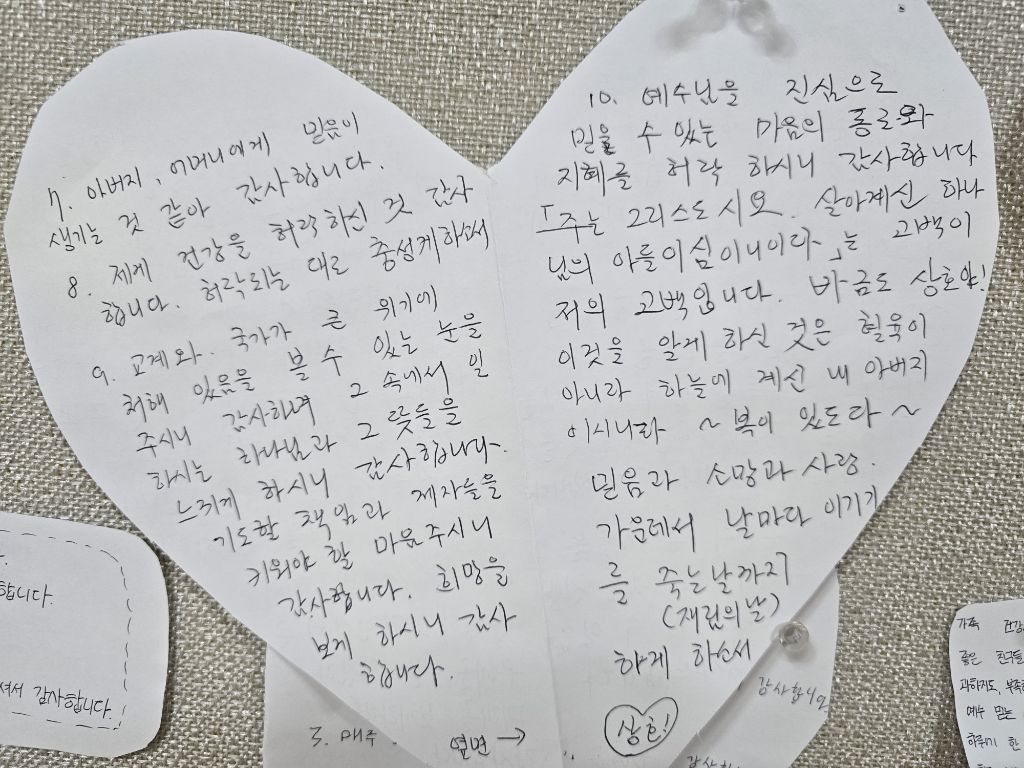 7. 아버지, 어머니에게 믿음이
생기는 것 같아 감사합니다.
8. 제게 건강을 허락하신 것 감사
합니다. 허락되는 대로 충성케하소서
9. 교계와 국가가 큰 위기에
처해 있음을 볼 수 있는 눈을
주시니 감사하며 그 속에서 일
하시는 하나님과 그 뜻들을
느끼게 하시니 감사합니다.
기도할 책임과 제자들을
키워야 할 마음주시니
감사합니다. 희망을
보게 하시니 감사
합니다.
옆면 →
10. 예수님을 진심으로
믿을 수 있는 마음의 통로와
지혜를 허락 하시니 감사합니다
「주는 그리스도시요. 살아계신 하나
님의 아들이심이니이다」는 고백이
저의 고백입니다. 바 금도 상호야!
이것을 알게 하신 것은 혈육이
아니라 하늘에 계신 내 아버지
이시니라 ~ 복이 있도다 ~
믿음과 소망과 사랑.
가운데서 날마다 이기기
를 죽는날까지
(재림의 날)
하게 하소서
상호!
합니다.
셔서 감사합니다.
3. 매주
감사합니다
가족 건강
좋은 친구들
과하지도, 부족
예수 믿는
하루가 한